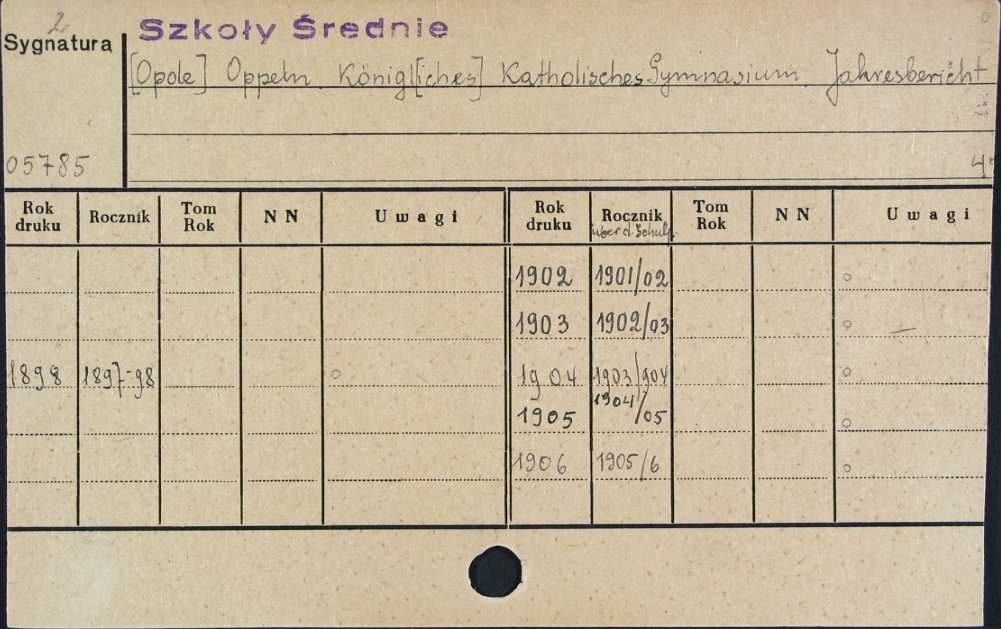 2
Szkoły Średnie
Sygnatura
[Opole] Oppeln. Königl[iches] Katholisches Gymnasium. Jahresbericht
05785
4°
Rok druku Rocznik Tom Rok N N Uwagi Rok druku Rocznik Tom Rok N N Uwagi
über d. Schulj.
1902 1901/02 o
1903 1902/03 o —
1898 1897-98 o 1904 1903/904 o
1905 1904/05 o
1906 1905/6 o